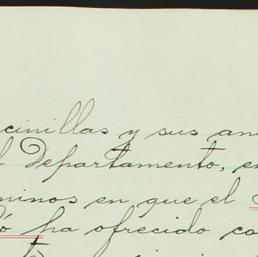 cinillas y sus an
l departamento, e
minos en que el
ó ha ofrecido co